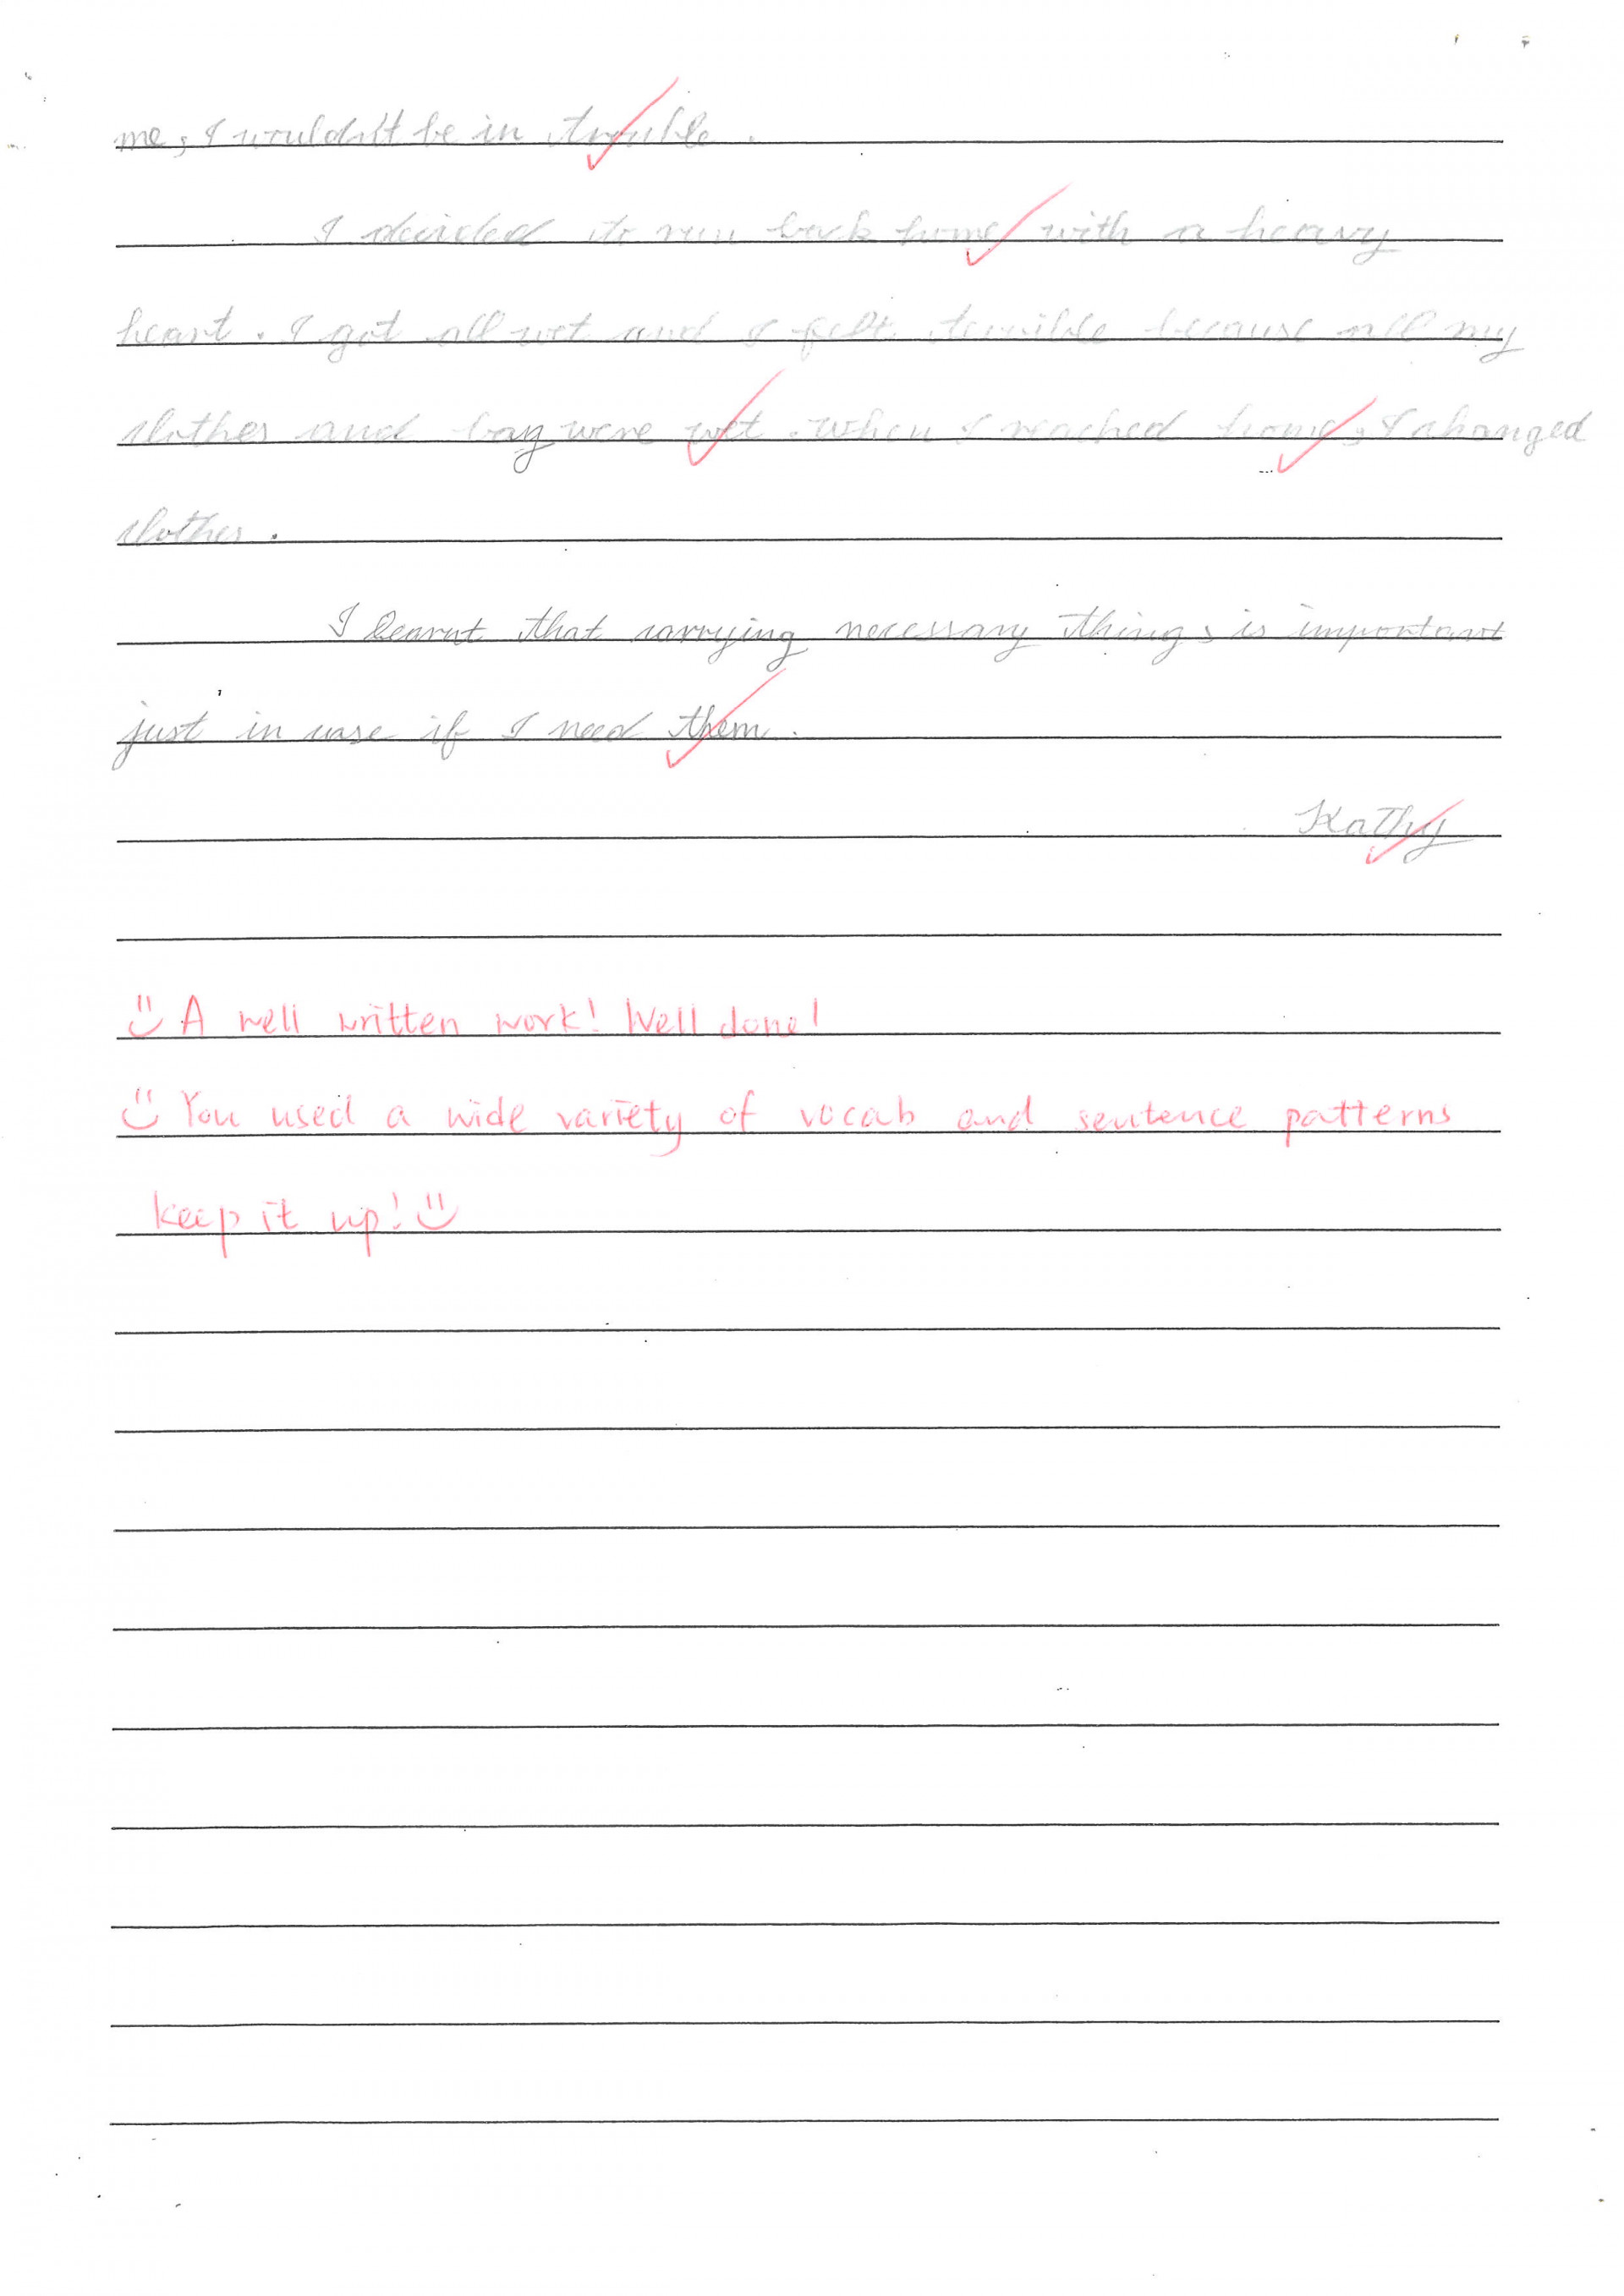 me, I wouldn't be in trouble.
I decided to run back home with a heavy
heart. I got all wet and I felt terrible because all my
clothes and bag were wet. When I reached home, I changed
clothes.
I learnt that carrying necessary things is important
just in case if I need them.
Kathy
A well written work! Well done!
You used a wide variety of vocab and sentence patterns
keep it up!